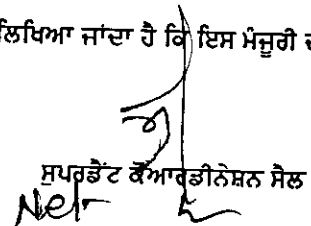 ਲਿਖਿਆ ਜਾਂਦਾ ਹੈ ਕਿ ਇਸ ਮੰਜੂਰੀ
ਸੁਪਰਡੈਂਟ ਕੋਆਰਡੀਨੇਸ਼ਨ ਸੈਲ